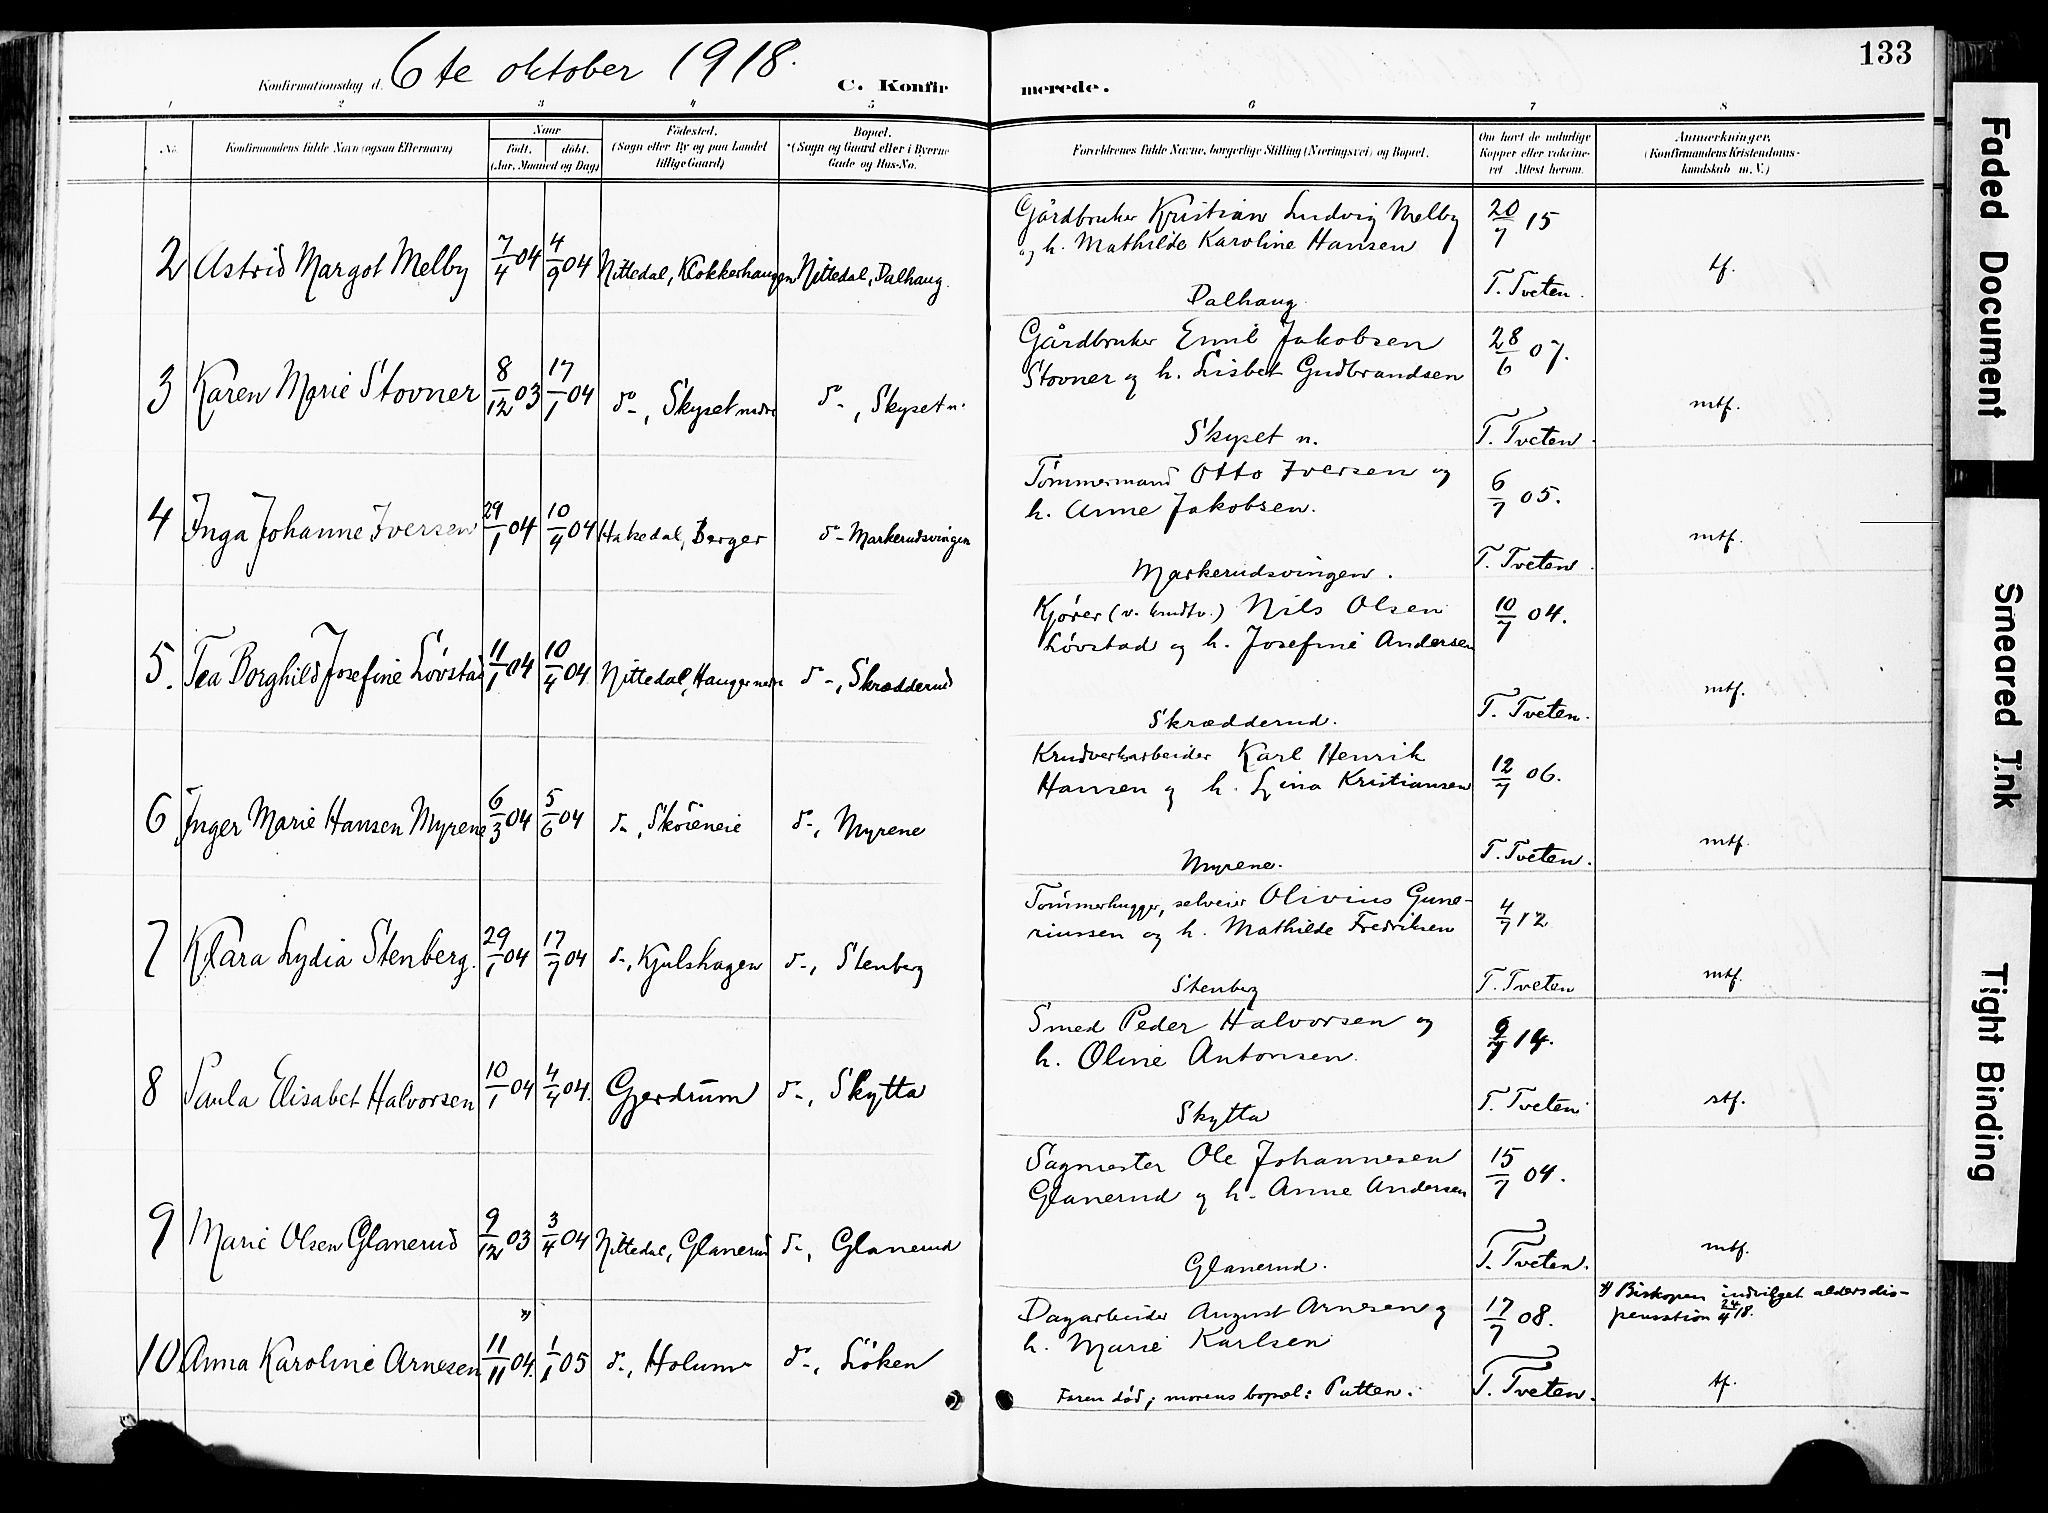 133
Konfirmationsdag d. 6te oktober 1918.
C. Konfirmerede.
1 2 3 4 5 6 7 8
No.
Konfirmandens fulde Navn (ogsaa Efternavn)
Naar
født. døbt.
(Aar, Maaned og Dag)
Fødested.
(Sogn eller By og paa Landet
tillige Gaard)
Bopæl.
(Sogn og Gaard eller i Byerne
Gade og Hus-No.
Forældrenes fulde Navne, borgerlige Stilling (Næringsvei) og Bopæl.
Om havt de naturlige
Kopper eller vaccine-
ret Attest herom.
Anmærkninger,
(Konfirmandens Kristendoms-
kundskab m. V.)
2 Astrid Margot Melby 7/4 04 4/9 04 Nittedal, Klokkerhaugen Nittedal, Dalhaug.
Gårdbruker Kristian Ludvig Melby
og h. Mathilde Karoline Hansen
Dalhaug.
20/7 15
T. Tveten.
tf.
3 Karen Marie Stovner 8/12 03 17/1 04 do -, Skyset nedre do -, Skyset n.
Gårdbruker Emil Jakobsen
Stovner og h. Lisbet Gudbrandsen
Skyset n.
28/6 07.
T. Tveten.
mtf.
4 Inga Johanne Iversen 29/1 04 10/4 04 Hakedal, Berger do - Markerudsvingen
Tømmermand Otto Iversen og
h. Anne Jakobsen.
Markerudsvingen.
6/7 05.
T. Tveten.
mtf.
5. Tea Borghild Josefine Løvstad 11/1 04 10/4 04 Nittedal, Hauger nedre do -, Skrædderud
Kjører (v. krudtv.) Nils Olsen
Løvstad og h. Josefine Andersen
Skrædderud.
10/7 04.
T. Tveten.
mtf.
6 Inger Marie Hansen Myrene 6/3 04 5/6 04 d -, Skøieneie do -, Myrene
Krudverksarbeider Karl Henrik
Hansen og h. Lina Kristiansen
Myrene.
12/7 06.
T. Tveten.
mtf.
7 Klara Lydia Stenberg. 29/1 04 17/7 04 d -, Kjulshagen d -, Stenberg
Tømmerhugger, selveier Olivius Gune-
riussen og h. Mathilde Fredriksen
Stenberg
4/7 12
T. Tveten
mtf.
8 Paula Elisabet Halvorsen 10/1 04 4/4 04. Gjerdrum do -, Skytta
Smed Peder Halvorsen og
h. Oline Antonsen.
Skytta
9/7 14.
T. Tveten
stf.
9 Marie Olsen Glanerud 9/12 03 3/4 04 Nittedal, Glanerud d -, Glanerud
Sagmester Ole Johannesen
Glanerud og h. Anne Andersen
Glanerud.
15/7 04.
T. Tveten.
mtf.
10. Anna Karoline Arnesen x) 11/11 04. 1/1 05 d -, Holum do -, Løken
Dagarbeider August Arnesen og
h. Marie Karlsen
Faren død; morens bopæl: Putten.
17/7 08.
T. Tveten.
x) Biskopen indvilget aldersdis-
pensation 24/4 18.
tf.
Faded Document
Smeared Ink
Tight Binding